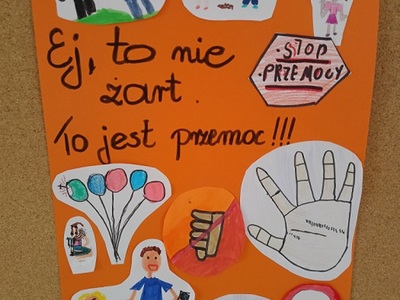 Ej, to nie
żart.
To jest przemoc!!!
STOP
PRZEMOCY